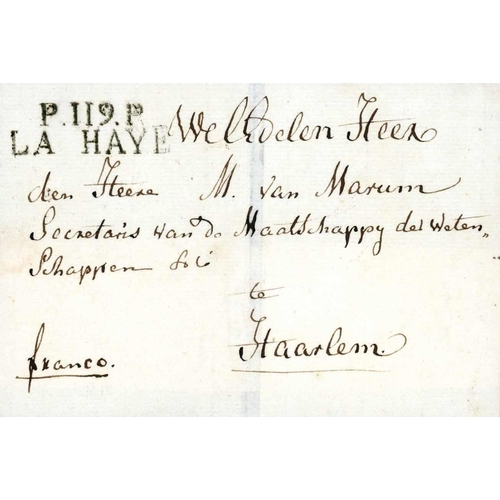 P.119.P.
LA HAYE
WelEdelen Heer
den Heere M. van Marum
Secretaris van de Maatschappy der Weten„
Schappen &c
te
Haarlem.
franco.